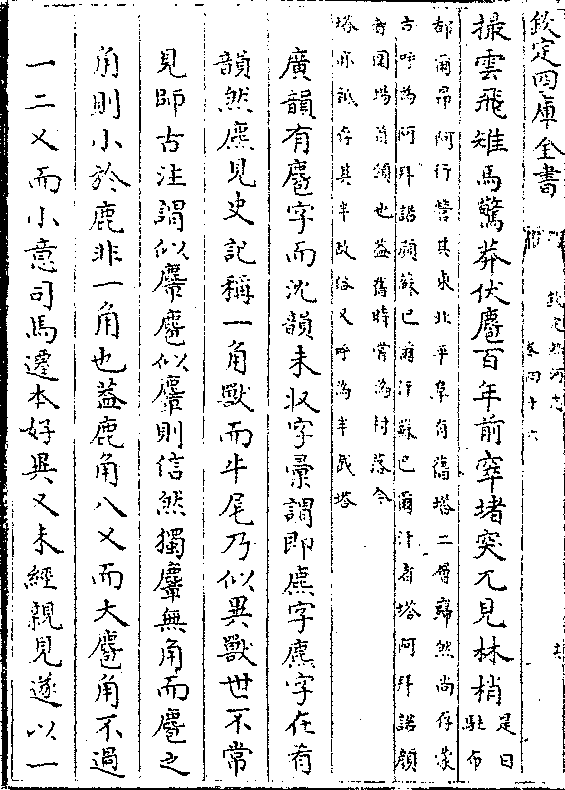 欽定四庫全書
欽定熱河志
卷四十六
撮雲飛雉馬驚莽伏麅百年前窣堵突兀見林梢是日駐布
都爾昂阿行營其東北平阜有舊塔二層巋然尚存蒙
古呼為阿拜諾顔蘇巴爾汗蘇巴爾汗者塔阿拜諾顔
者圍場首領也蓋舊時嘗為村落今
塔亦祗存其半故俗又呼為半截塔
廣韻有麅字而沈韻未収字彚謂即麃字麃字在肴
韻然麃見史記稱一角獸而牛尾乃似異獸世不常
見師古注謂似麞麅似麞則信然獨麞無角而麅之
角則小於鹿非一角也葢鹿角八叉而大麅角不過
一二叉而小意司馬遷本好異又未經親見遂以一